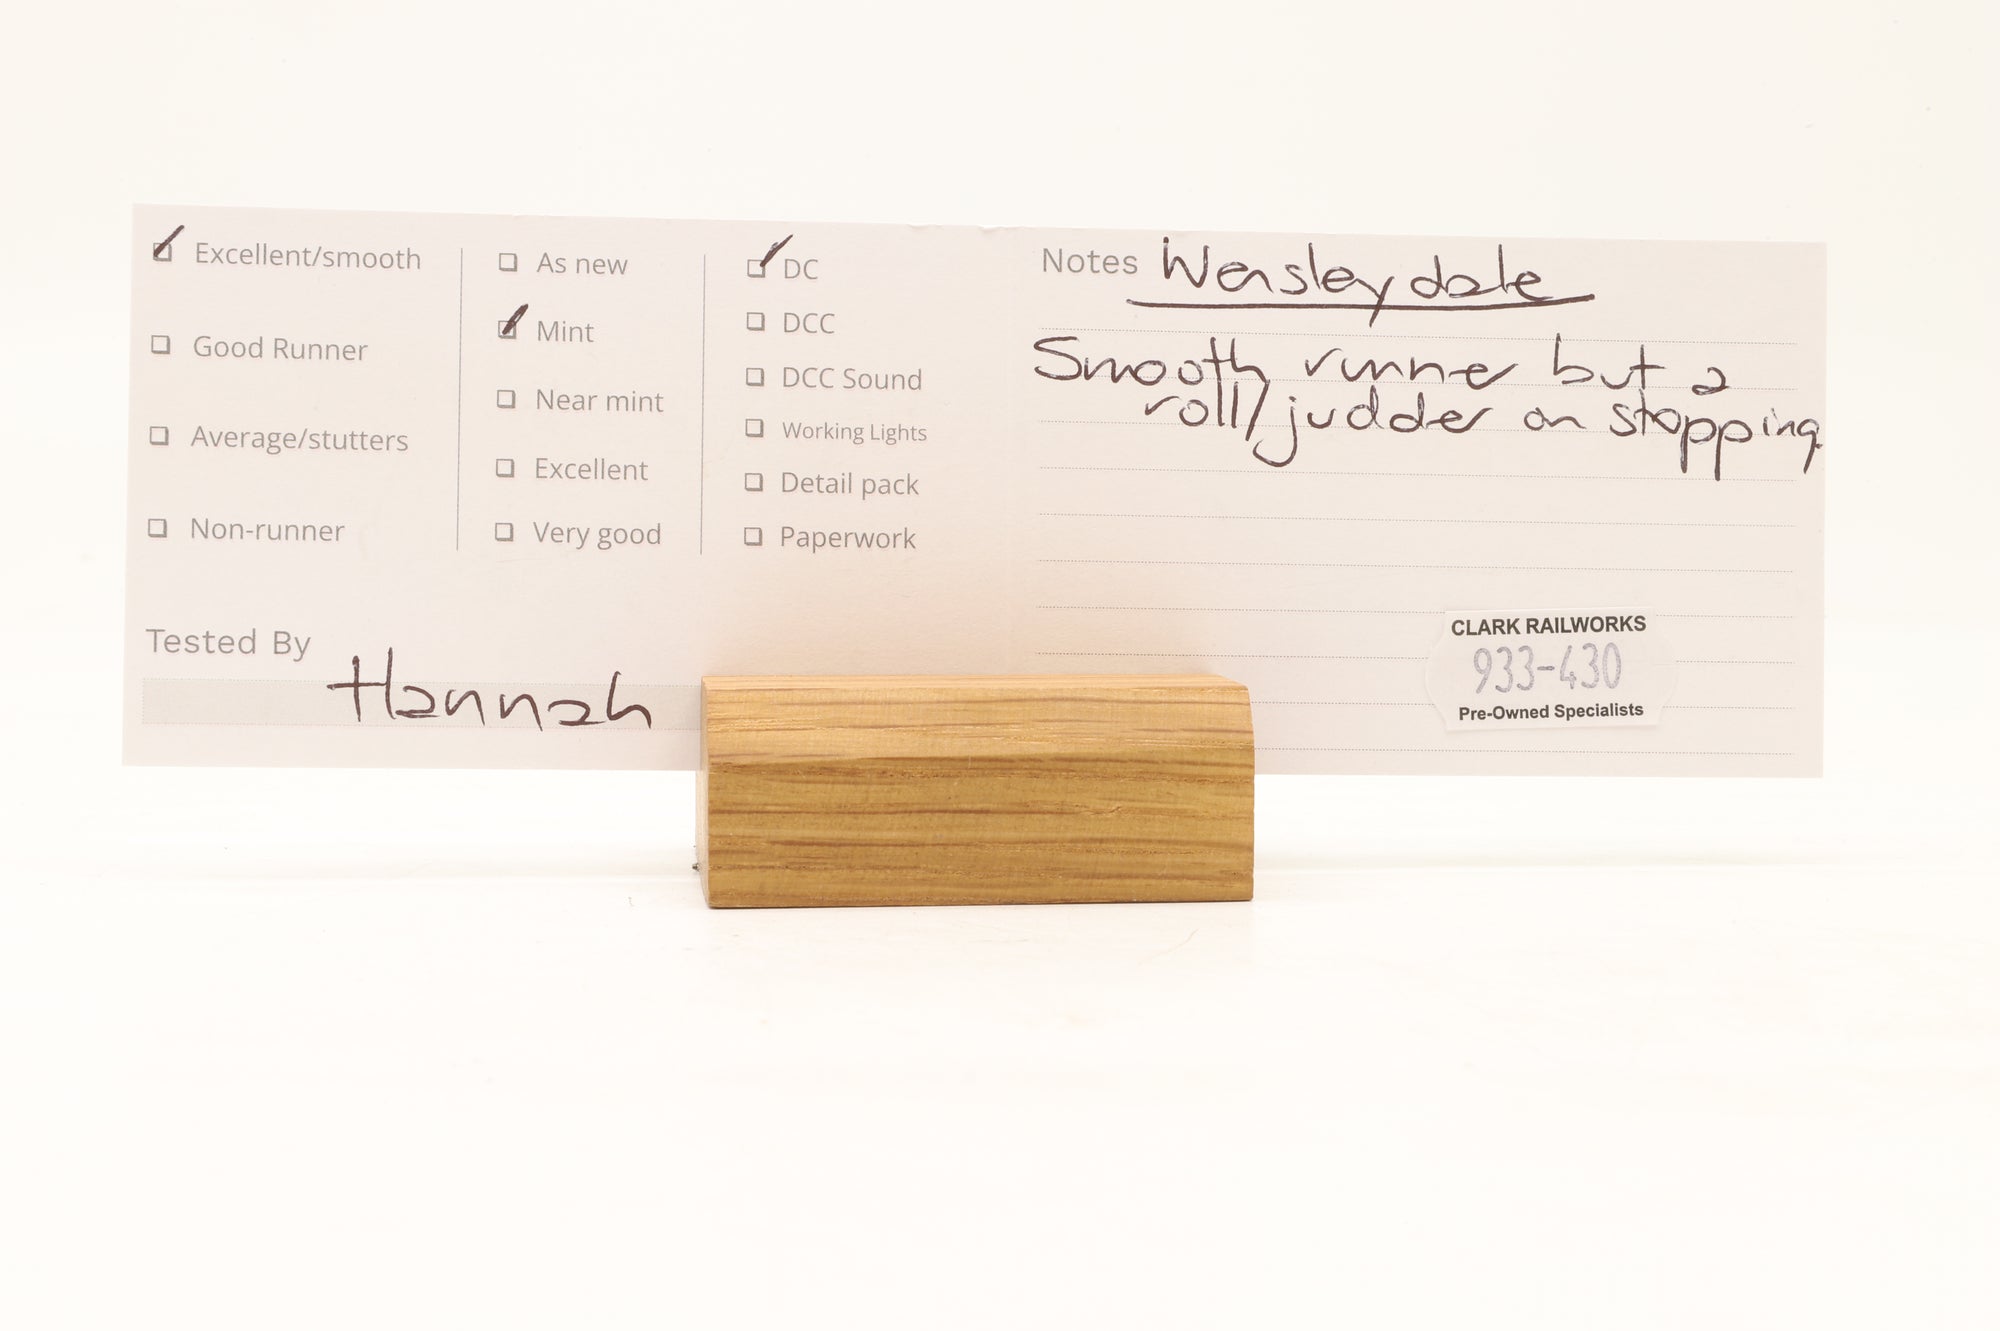 Excellent/smooth
Good Runner
Average/stutters
Non-runner
As new
Mint
Near mint
Excellent
Very good
DC
DCC
DCC Sound
Working Lights
Detail pack
Paperwork
Tested By
Hannah
Notes Wensleydale
Smooth runner but a
roll/judder on stopping
CLARK RAILWORKS
933-430
Pre-Owned Specialists